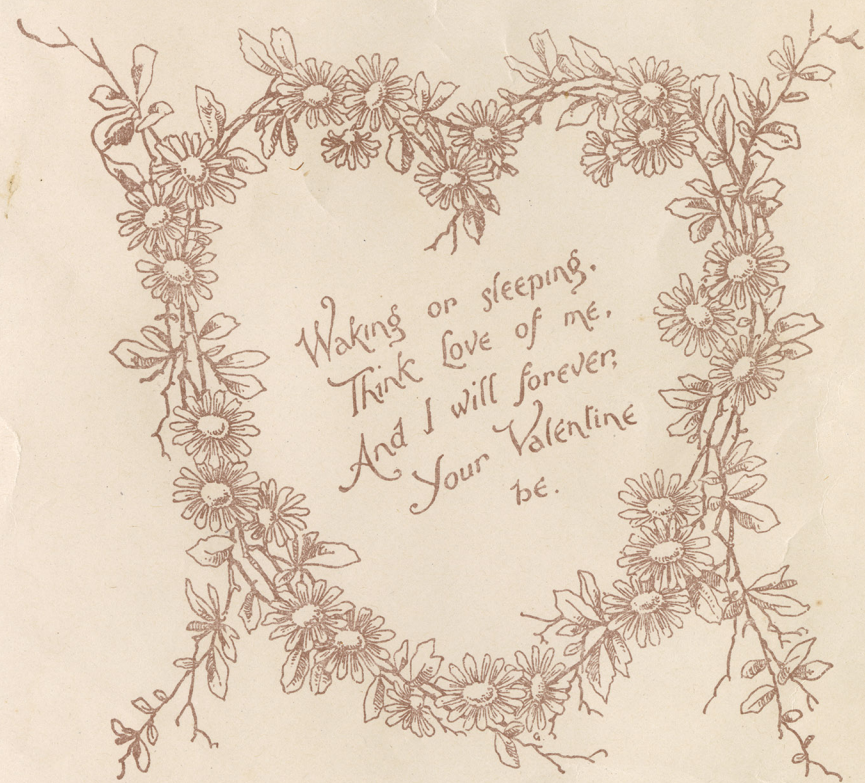 Waking or sleeping,
Think Love of me,
And I will forever,
Your Valentine
be.